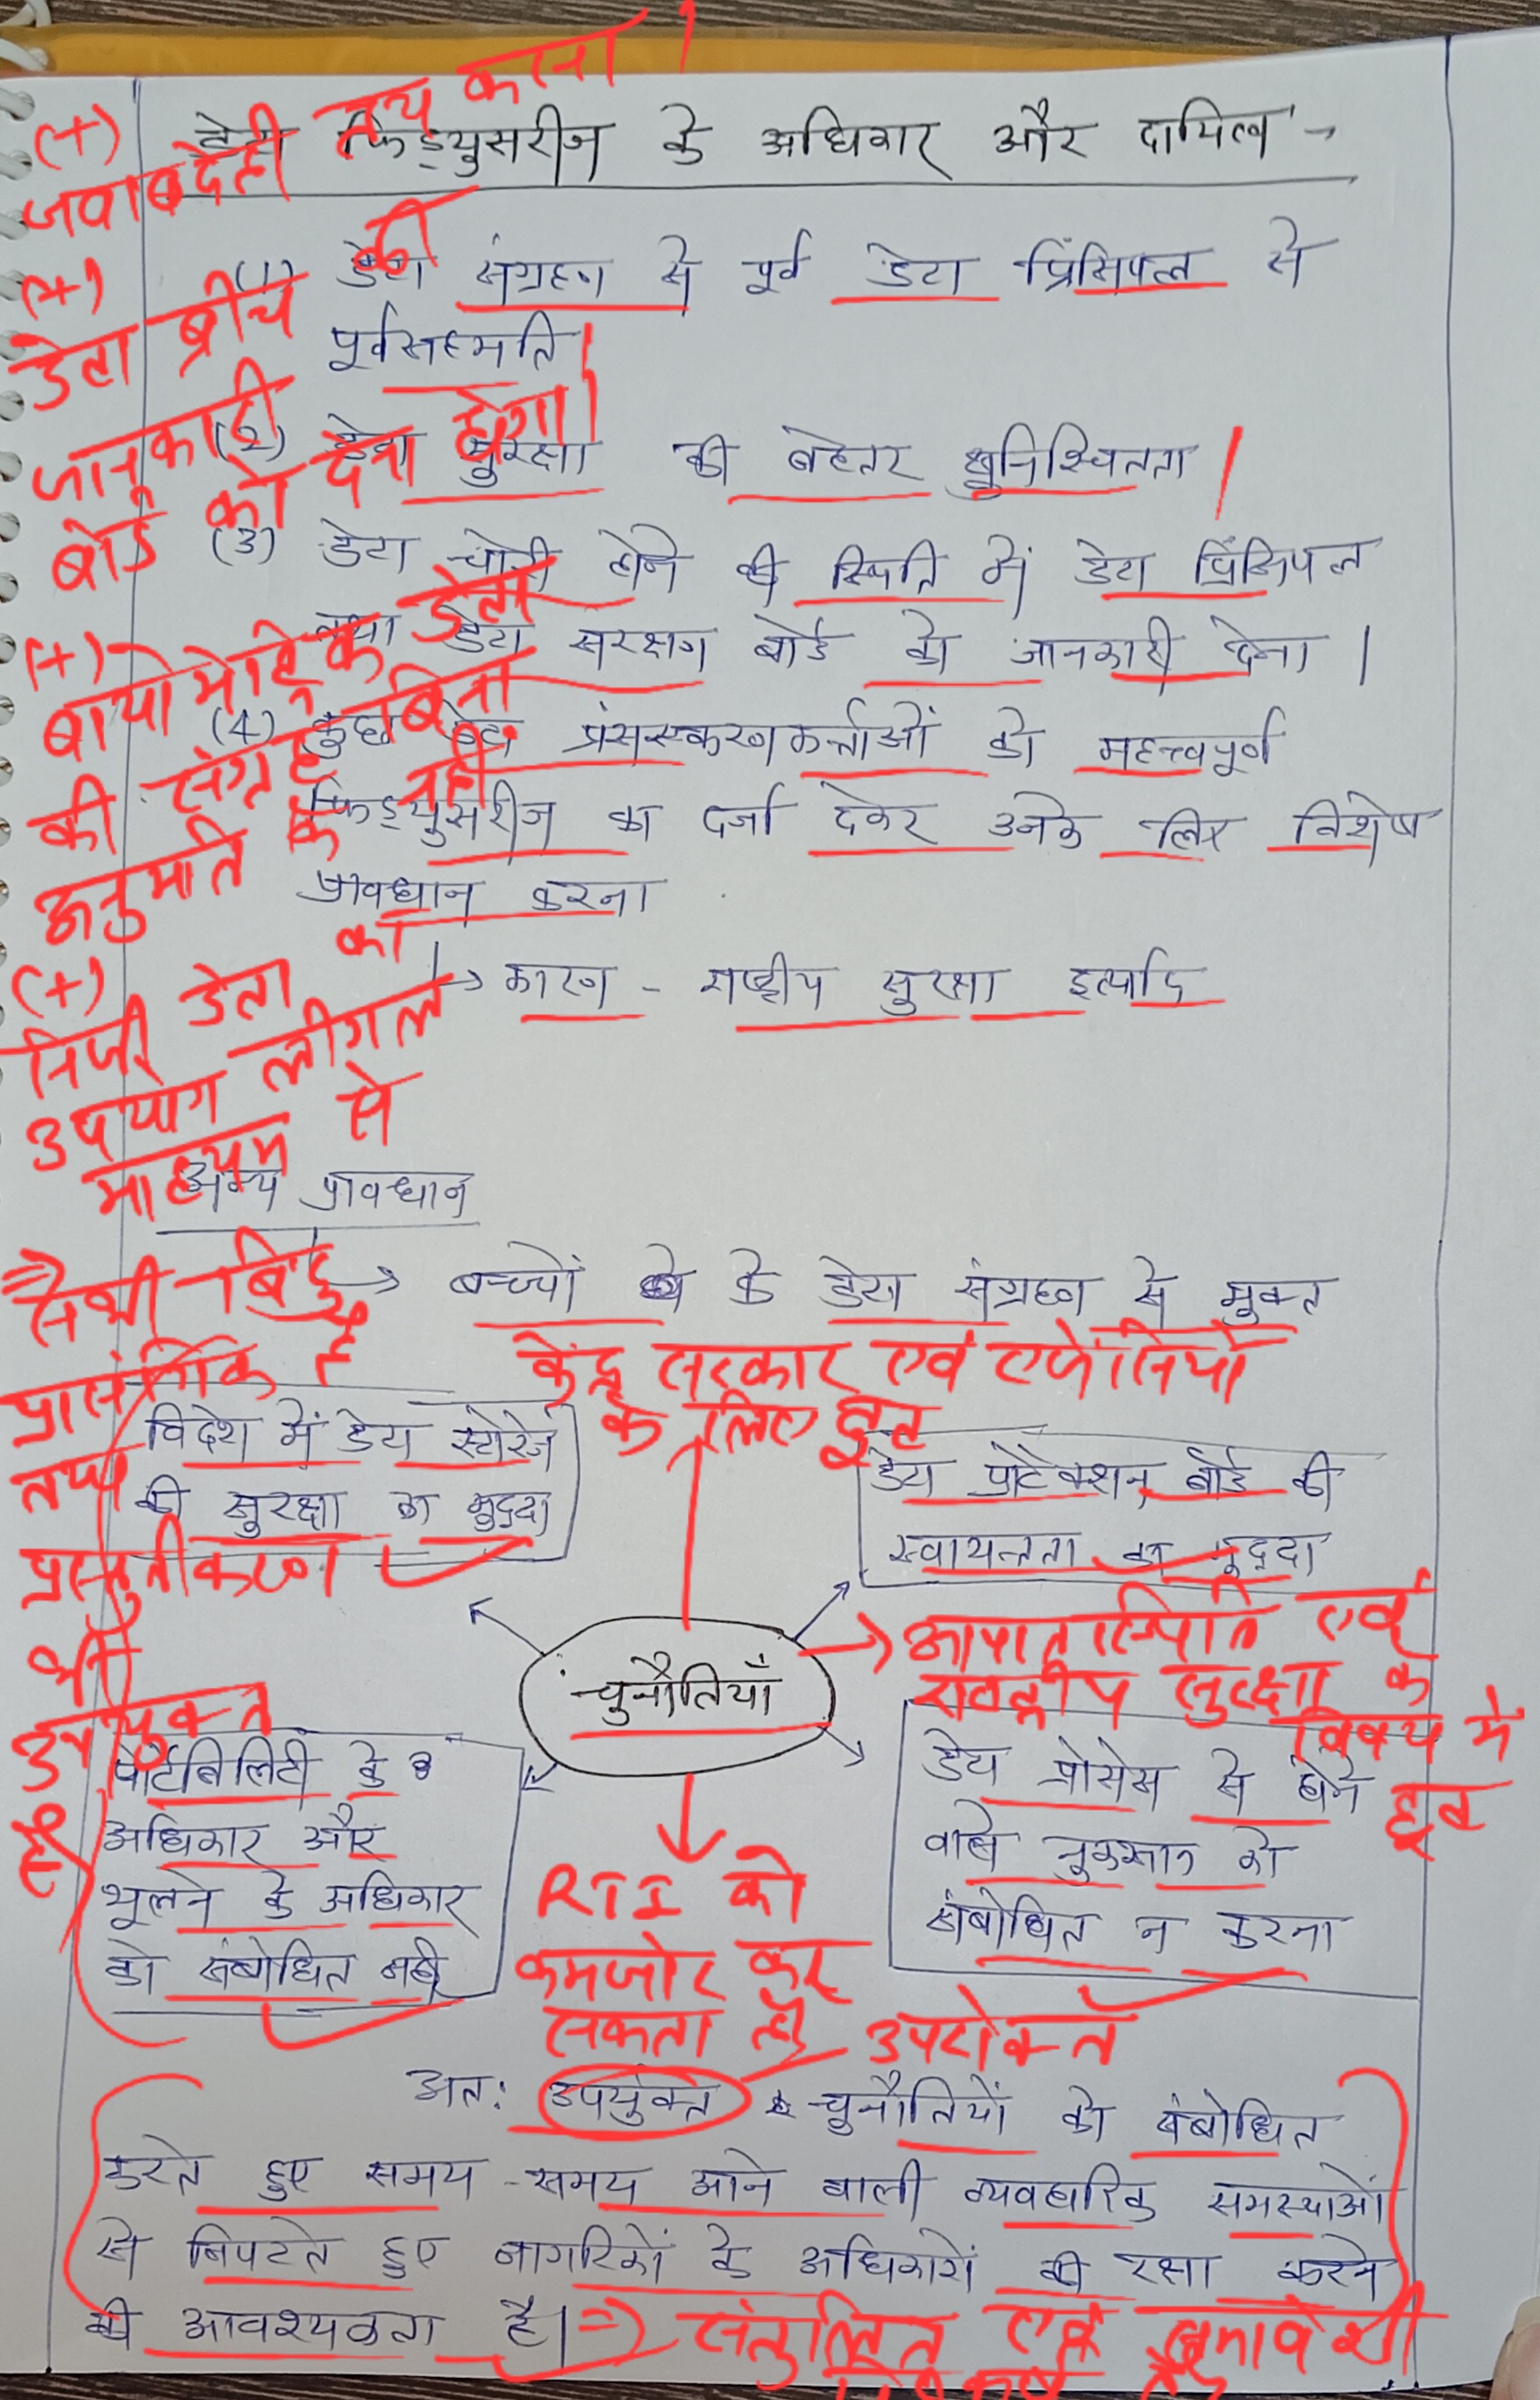 डेटा फिड्युसरीज के अधिकार और दायित्व -
(1) डेटा संग्रहण से पूर्व डेटा प्रिंसिपल से
पूर्वसहमति
(2) डेटा सुरक्षा की बेहतर सुनिश्चितता
(3) डेटा चोरी होने की स्थिति में डेटा प्रिंसिपल
तथा डेटा संरक्षण बोर्ड को जानकारी देना ।
(4) कुछ डेटा प्रंसस्करणकर्त्ताओं को महत्त्वपूर्ण
फिड्युसरीज का दर्जा देकर उनके लिए विशेष
प्रावधान करना
→ कारण - राष्ट्रीय सुरक्षा इत्यादि
(+)
जवाबदेही तय करना ।
(+)
डेटा ब्रीच की
जानकारी
बोर्ड को देना होगा।
(+)
बायोमेट्रिक डेटा
की संग्रह बिना
अनुमति के नहीं
(+)
निजी डेटा का
उपयोग लीगल
माध्यम से
अन्य प्रावधान
→ बच्चों के डेटा संग्रहण से मुक्त
⇒ सभी बिंदु
प्रासंगिक है
तथा
प्रस्तुतीकरण
भी
उपयुक्त
है
केंद्र सरकार एवं एजेंसियों
के लिए छूट
विदेश में डेटा स्टोरेज
की सुरक्षा का मुद्दा
डेटा प्रोटेक्शन बोर्ड की
स्वायत्तता का मुद्दा
चुनौतियाँ
→ आपातस्थिति एवं
राष्ट्रीय सुरक्षा के
विषय में
छूट
पोर्टेबिलिटी के
अधिकार और
भूलने के अधिकार
को संबोधित नहीं
डेटा प्रोसेस से होने
वाले नुकसान को
संबोधित न करना
RTI को
कमजोर कर
सकता है
उपरोक्त
अतः उपर्युक्त चुनौतियों को संबोधित
करते हुए समय-समय आने वाली व्यवहारिक समस्याओं
से निपटते हुए नागरिकों के अधिकारों की रक्षा करने
की आवश्यकता है। ⇒ संतुलित एवं समावेशी
निष्कर्ष है